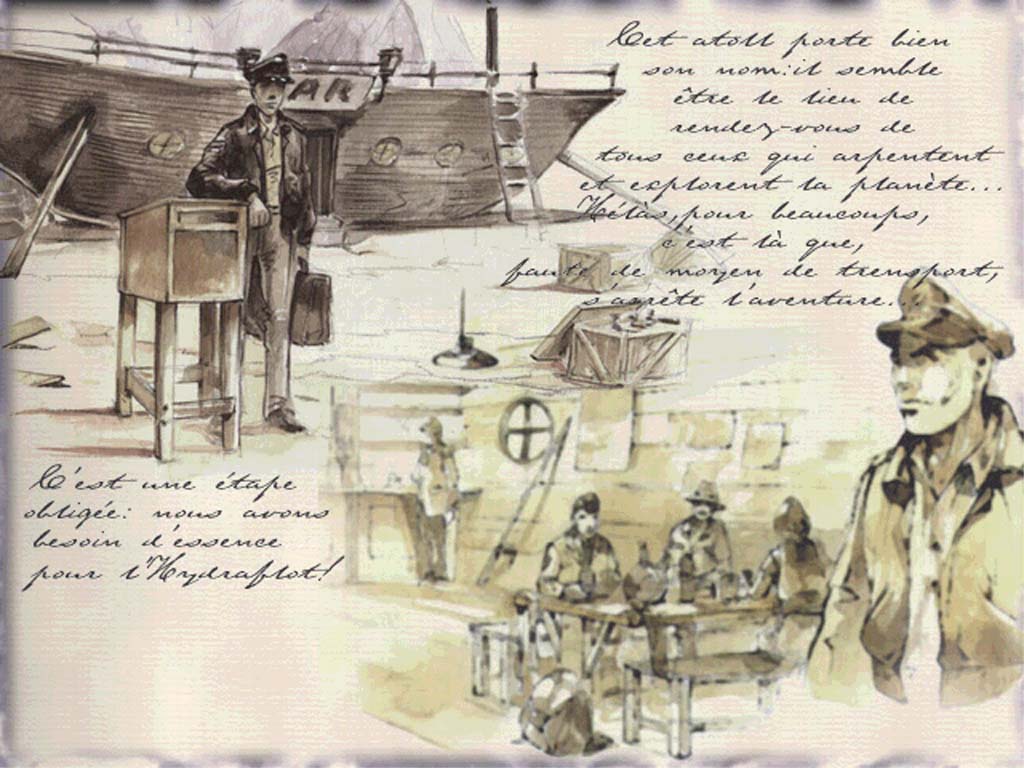 Cet atoll porte bien
son nom: il semble
être le lieu de
rendez-vous de
tous ceux qui arpentent
et explorent la planète...
Hélàs, pour beaucoups,
c'est là que,
faute de moyen de trensport,
s'arrête l'aventure...
BAR
C'est une étape
obligée: nous avons
besoin d'éssence
pour l'Hydraflot!